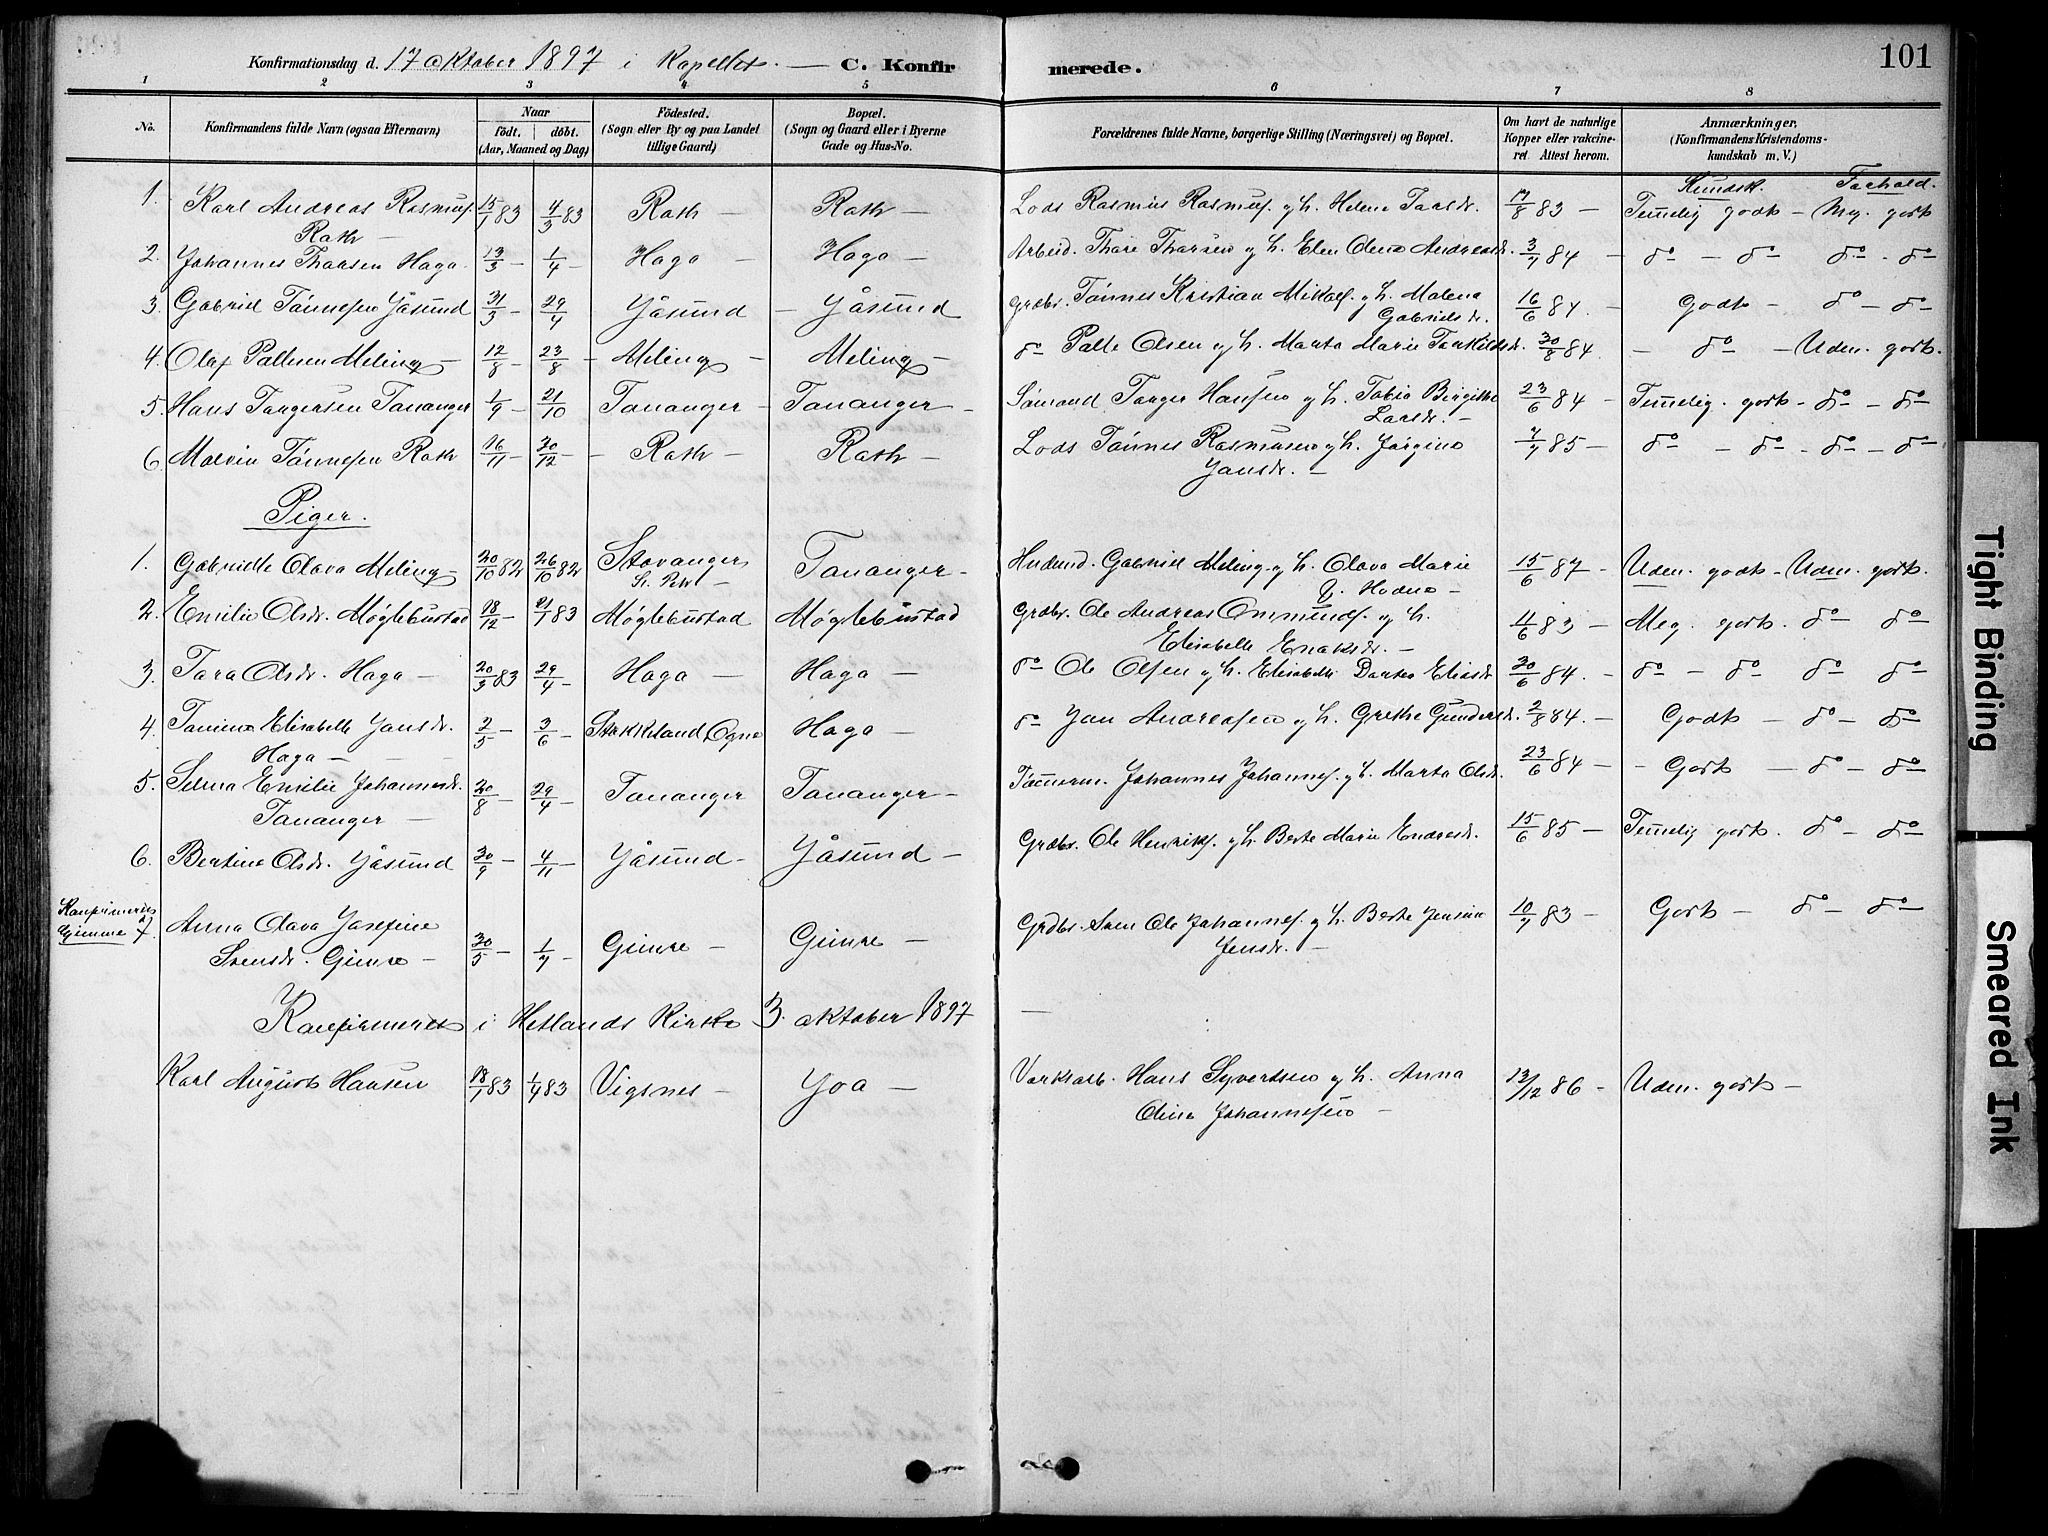 101
Konfirmationsdag d. 17 Oktober 1897 i Kapellet. — C. Konfirmerede.
1 2 3 4 5 6 7 8
No. Konfirmandens fulde Navn (ogsaa Efternavn) Naar födt. döbt. (Aar, Maaned og Dag) Födested. (Sogn eller By og paa Landet tillige Gaard) Bopæl. (Sogn og Gaard eller i Byerne Gade og Hus-No. Forældrenes fulde Navne, borgerlige Stilling (Næringsvei) og Bopæl. Om havt de naturlige Kopper eller vakcineret Attest herom. Anmærkninger, (Konfirmandens Kristendomskundskab m. V.)
Kundsk. Forhold.
1. Karl Andreas Rasmus. 15/1 83 4/3 83 Roth — Roth — Lods Rasmus Rasmus. & h. Helene 17/8 83 — Temelig godt — Meg. godt
Roth —
2. Johannes Thorsen Haga 13/3 — 1/4 — Haga — Haga — Arbeid. Thore Thorsen & h. Elen Olena Andreasdr. 3/7 84 — do — do do — do
3. Gabriel Tönnesen Jåsund 31/3 — 29/4 Jåsund — Jåsund Grdbr. Tönnes Kristian Mikals. & h. Malena 16/6 84 — Godt — do — do
Gabrielsdr.
4. Olaf Pallesen Meling — 12/8 — 23/8 — Meling — Meling — do Palle Olsen & h. Marta Marie Torkildsdr. 30/8 84. — do — Uden. godt.
5. Hans Torgersen Tananger 1/9 — 21/10 Tananger — Tananger — Sömand Torger Hansen & h. Tobia Birgitte 23/6 84 — Temelig. godt — do — do
Larsdr. —
6 Malvin Tönnesen Roth 16/11 — 30/12 — Roth — Roth — Lods Tönnes Rasmusen & h. Jörgine 7/7 85 — do — do — do — do
Jansdr. —
Piger.
1. Gabrielle Olava Meling — 20/10 82 26/10 82 Stavanger Tananger — Gabriel Meling & h. Olava Marie 15/6 87 — Uden. godt — Uden. godt.
St. Petr —
2. Emilie Olsdr. Möglebustad 18/12 — 21/1 83 Möglebustad Möglebustad Grdbr. Ole Andreas Ommunds. & h. 11/6 83 — Meg. godt. do do
Elisabette Enoksdr. —
3. Tora Olsdr. Haga — 20/3 83 29/4 — Haga — Haga — do Ole Olsen & h. Elisabette Dortea Eliasdr. 20/6 84. — do — do do do
4. Tomine Elisabette Jansdr. 2/5 — 3/6 — Stokkeland, Ogna Haga — do Jan Andreasen & h. Grethe Gundersdr. 2/8 84. — Godt — do — do
Haga —
5. Selma Emilie Johannesdr. 20/8 — 29/4 — Tananger Tananger — Tömerm. Johannes Johannes. & h. Marta Olsdr. 23/6 84 — Godt — do — do
Tananger —
6. Bertine Olsdr. Jåsund 30/9 — 4/11 — Jåsund — Jåsund — Grdbr. Ole Henriks. & h. Berte Marie Endresdr. 15/6 85 — Temelig godt. do — do
Konfirmeret
Gimre 7. Anna Olava Josefine 30/5 — 1/7 — Gimre — Gimre — Grdbr. Sven Ole Johannes. & h. Berte Jensine 10/7 83 — Godt — do — do
Svensdr. Gimre — Jensdr. —
Konfirmeret i Hetlands Kirke 3. oktober 1897 —
Karl August Hansen 18/1 83 1/4 83 Vigsnes — Joa — Varksarb. Hans Syvertsen & h. Anna 13/12 86 — Uden. godt —
Oline Johannesen —
Tight Binding
Smeared Ink